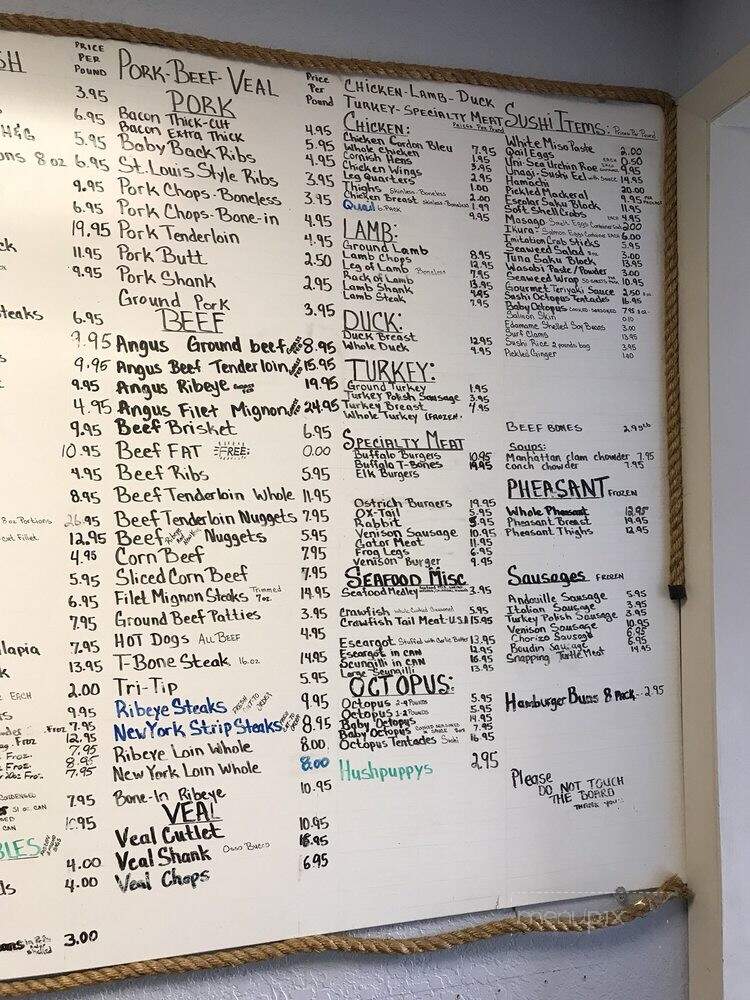 SH
PRICE
PER
POUND
3.95
6.95
H&G 5.95
ons 8 oz 6.95
9.95
6.95
19.95
ck 11.95
9.95
teaks 6.95
9.95
9.95
9.95
4.95
9.95
10.95
4.95
8.95
8 oz Portions 26.95
cut Fillet 12.95
4.95
5.95
6.95
7.95
lapia 7.95
13.95
EACH 2.00
9.95
Froz 7.95
Froz 12.95
Froz. 7.95
Froz. 8.95
Froz. 7.95
7.95
51 oz. CAN
CAN 10.95
BLES
4.00
4.00
3.00
PORK-BEEF-VEAL
Price
Per
Pound
PORK
Bacon Thick-Cut 4.95
Bacon Extra Thick
Baby Back Ribs 4.95
St. Louis Style Ribs 3.95
Pork Chops-Boneless 3.95
Pork Chops-Bone-in 4.95
Pork Tenderloin 4.95
Pork Butt 2.50
Pork Shank 2.95
Ground Pork 3.95
BEEF
Angus Ground beef 8.95
Angus Beef Tenderloin 15.95
Angus Ribeye 19.95
Angus Filet Mignon 24.95
Beef Brisket 6.95
Beef FAT FREE 0.00
Beef Ribs 5.95
Beef Tenderloin Whole 11.95
Beef Tenderloin Nuggets 7.95
Beef Nuggets 5.95
Corn Beef 7.95
Sliced Corn Beef 7.95
Filet Mignon Steaks Trimmed 7oz. 14.95
Ground Beef Patties 3.95
HOT Dogs ALL BEEF 4.95
T-Bone Steak 16 oz 14.95
Tri-Tip 5.95
Ribeye Steaks 9.95
New York Strip Steaks 8.95
Ribeye Loin Whole 8.00
New York Loin Whole 8.00
Bone-In Ribeye 10.95
VEAL
Veal Cutlet 10.95
Veal Shank Osso Bucco 15.95
Veal Chops 6.95
CHICKEN-LAMB-DUCK
TURKEY-SPECIALTY MEAT Prices Per Pound
CHICKEN:
Chicken Cordon Bleu 7.95
Whole Chicken 1.95
Cornish Hens 3.95
Chicken Wings 2.95
Leg Quarters 1.00
Thighs Skinless-Boneless 2.00
Chicken Breast Skinless-Boneless 1.99
Quail 6-PACK 9.95
LAMB:
Ground Lamb 8.95
Lamb Chops 12.95
Leg of Lamb Boneless 7.95
Rack of Lamb 13.95
Lamb Shank 4.95
Lamb Steak 7.95
DUCK:
Duck Breast 12.95
Whole Duck 4.95
TURKEY:
Ground Turkey 1.95
Turkey Polish Sausage 3.95
Turkey Breast 4.95
Whole Turkey (FROZEN.
SPECIALTY MEAT
Buffalo Burgers 10.95
Buffalo T-Bones 19.95
Elk Burgers
Ostrich Burgers 19.95
OX-Tail 5.95
Rabbit 5.95
Venison Sausage 10.95
Gator Meat 11.95
Frog Legs 6.95
Venison Burger 9.95
SEAFOOD MISC
Seafood Medley 3.95
Crawfish Whole Cooked Seasoned 5.95
Crawfish Tail Meat U.S.A 15.95
Escargot Stuffed with Garlic Butter 13.95
Escargot in CAN 12.95
Scungilli in CAN 16.95
Large Scungilli 13.95
OCTOPUS:
Octopus 2-4 Pounds 5.95
Octopus 1-2 Pounds 5.95
Baby Octopus 14.95
Baby Octopus 7.95
Octopus Tentacles Sushi 16.95
Hushpuppys 2.95
SUSHI ITEMS: Prices Per Pound
White Miso Paste 2.00
Qail Eggs EACH 0.50
Uni-Sea Urchin Roe 9.95
Unagi-Sushi Eel with Sauce 14.95
Hamachi 20.00
Pickled Mackeral 9.95
Escolar Saku Block 11.95
Soft Shell Crabs EACH 4.95
Masago Smelt Eggs Container 2.00
Ikura-Salmon Eggs Container EACH 6.00
Imitation Crab Sticks 5.95
Seaweed Salad 3.00
Tuna Saku Block 13.95
Wasabi Paste/Powder 3.00
Seaweed Wrap 50 SHEETS 10.95
Gourmet Teriyaki Sauce 2.50
Sushi Octopus Tentacles 16.95
Baby Octopus COOKED SEASONED 7.95
Salmon Skin 0.10
Edamame Shelled Soy Beans 3.00
Surf Clams 13.95
Sushi Rice 2 pounds bag 3.95
Pickled Ginger 1.00
BEEF BONES 2.95 LB
Soups:
Manhattan clam chowder 7.95
conch chowder 7.95
PHEASANT FROZEN
Whole Pheasant 12.95
Pheasant Breast 19.95
Pheasant Thighs 12.95
Sausages FROZEN
Andouille Sausage 5.95
Italian Sausage 3.95
Turkey Polish Sausage 3.95
Venison Sausage 10.95
Chorizo Sausage 6.95
Boudin Sausage 6.95
Snapping Turtle Meat 14.95
Hamburger Buns 8 Pack. 2.95
Please
DO NOT TOUCH
THE BOARD
THANK YOU
menupix